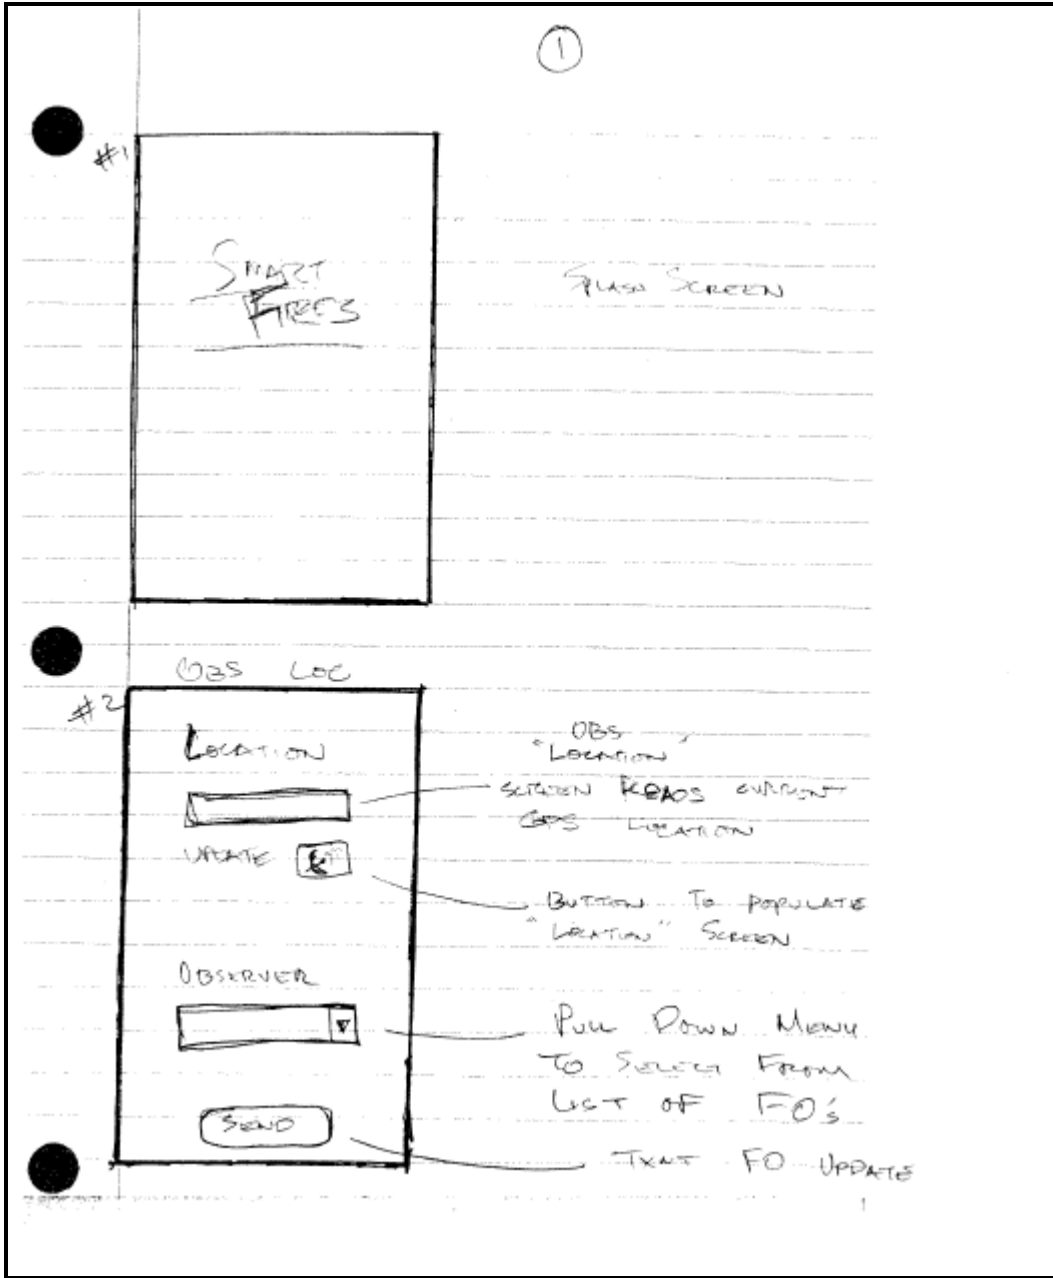 1
#1
SMART
FIRES
SPLASH SCREEN
OBS LOC
#2
LOCATION
OBS
"LOCATION"
SCREEN READS CURRENT
GPS LOCATION
UPDATE
BUTTON TO POPULATE
"LOCATION" SCREEN
OBSERVER
PULL DOWN MENU
TO SELECT FROM
LIST OF FO's
SEND
TXMT FO UPDATE